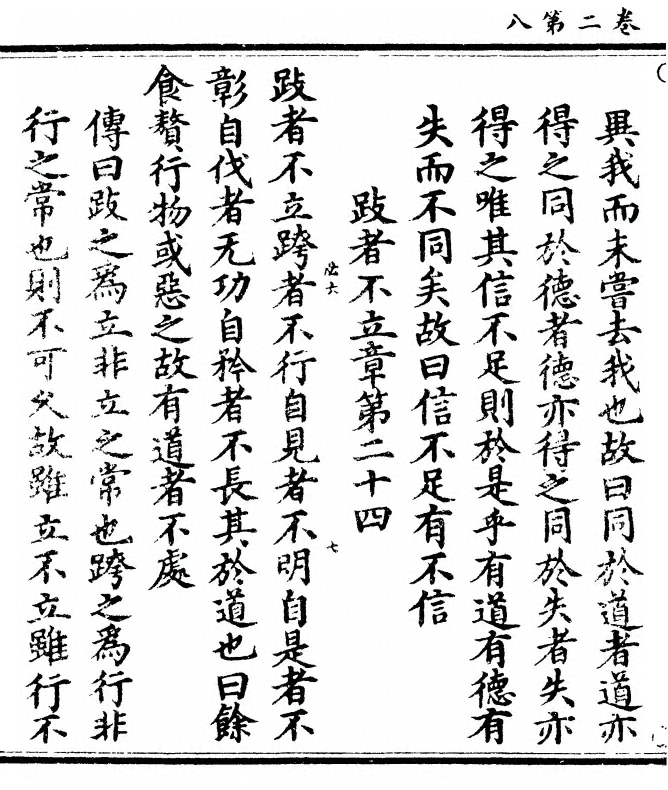 卷二第八
異我而未嘗去我也故曰同於道者道亦
得之同於德者德亦得之同於失者失亦
得之唯其信不足則於是乎有道有德有
失而不同矣故曰信不足有不信
跂者不立章第二十四
跂者不立跨者不行自見者不明自是者不
彰自伐者无功自矜者不長其於道也曰餘
食贅行物或惡之故有道者不處
傳曰跂之爲立非立之常也跨之爲行非
行之常也則不可久故雖立不立雖行不